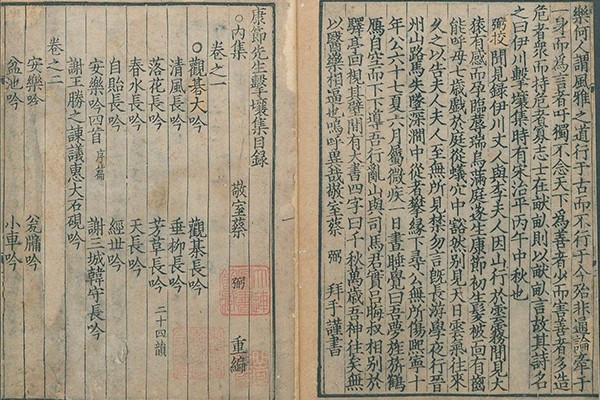 樂何人謂風雅之道行于古而不行于今殆非通論牽于
一身而為言者吁獨不念天下為善者少而害善者多造
危者衆而持危者寡志士在畎畝則以畎畝言故其詩名
之曰伊川擊壤集時有宋治平丙午中秋也
弼校聞見錄伊川丈人與李夫人因山行於雲霧間見大
猿有感而孕臨蓐瑞烏滿庭遂生康節初生髮被面有齒
能呼母七歲戲於庭從蟻穴中豁然別見天日雲氣往來
久之以告夫人夫人至無所見禁勿言既長游學夜行晉
州山路馬失墜深澗中從者攀緣下尋公無所傷熙寧十
年公六十七夏六月屬微疾一日晝睡覺曰吾夢旌旂鶴
雁自空而下下導吾行亂山與司馬君實呂晦叔相別於
驛亭回視其壁間有大書四字曰千秋萬歲吾神往矣無
以醫藥相逼也嗚呼異哉敬室蔡 弼 拜手謹書
康節先生擊壤集目錄
○內集 敬室蔡 弼 重編
卷之一
○觀碁大吟 觀棊長吟
清風長吟 垂柳長吟
落花長吟 芳草長吟 二十四韻
春水長吟 天長吟
自貽長吟 經世吟
安樂吟四首 序篇 謝三城韓守長吟
謝王勝之諫議惠大石硯吟
卷之二
安樂吟 甕牖吟
盆池吟 小車吟